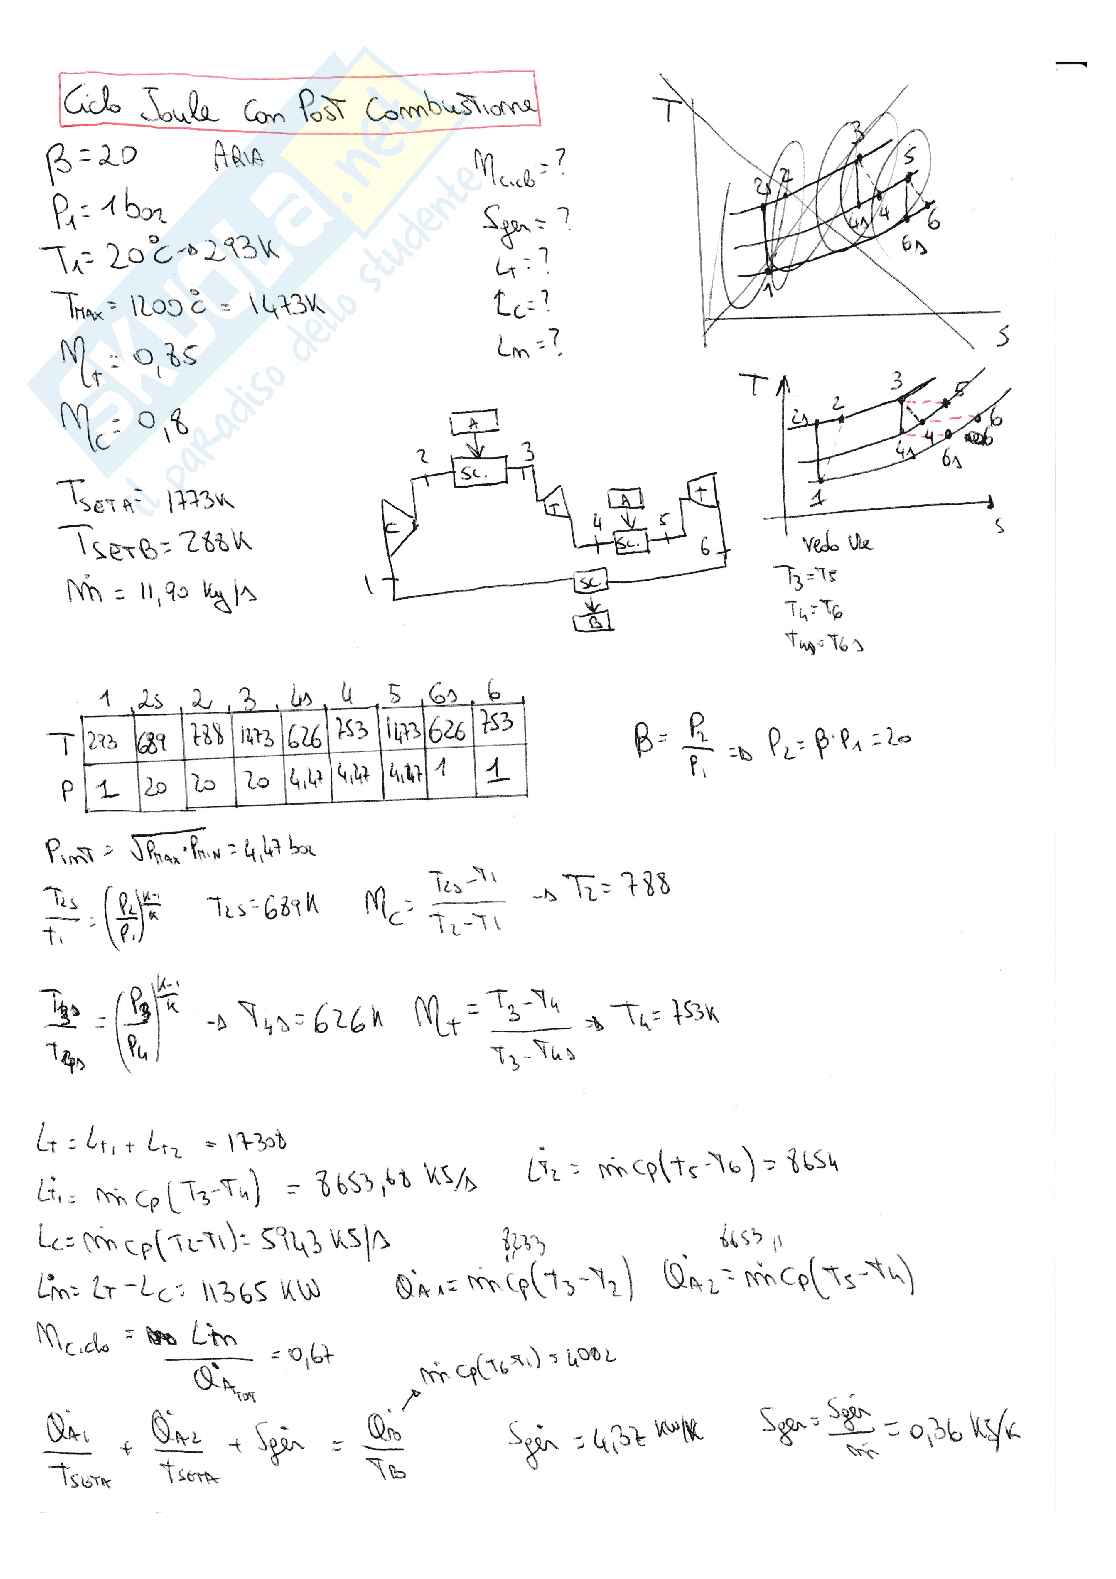 Ciclo Joule con Post Combustione
β=20 ARIA
P1=1bar
T1=20°C→293K
TMAX=1200°C=1473K
ηt=0,85
ηc=0,8
TSETA=1773K
TSETB=288K
ṁ=11,90 Kg/s
ηciclo=?
Sgen=?
Lt=?
Lc=?
Lm=?
T
2s 2 3 5
4s 4 6
6s
1
S
T
2s 2 3 5
4s 4 6s 6
1
S
vedo che
T3=T5
T4=T6
T4s=T6s
A
2 SC. 3
C T A T
4 SC. 5
1 SC 6
B
1 2s 2 3 4s 4 5 6s 6
T 293 689 788 1473 626 753 1473 626 753
P 1 20 20 20 4,47 4,47 4,47 1 1
β = P2/P1 ⇒ P2=β·P1=20
Pint = √PMAX·PMIN = 4,47 bar
T2s/T1 = (P2/P1)^K-1/K T2s=689K ηc = T2s-T1/T2-T1 → T2=788
T3/T4s = (P3/P4)^K-1/K → T4s=626K ηt = T3-T4/T3-T4s ⇒ T4=753K
LT = LT1 + LT2 = 17308
L̇t1 = ṁcp(T3-T4) = 8653,68 KJ/s L̇T2 = ṁcp(T5-T6) = 8654
Lc=ṁcp(T2-T1)=5943 KJ/s
L̇m=LT-LC=11365 KW Q̇A1=ṁcp(T3-T2) 8233 Q̇A2=ṁcp(T5-T4) 8653,1
ηciclo = L̇m/Q̇ATOT = 0,67
ṁcp(T6-T1)=4002
Q̇A1/TSETA + Q̇A2/TSETA + Sgėn = Q̇B/TB Sgėn = 4,37 KW/K Sgen = Sgėn/ṁ = 0,36 KJ/K
SKUOLA.net
il paradiso dello studente